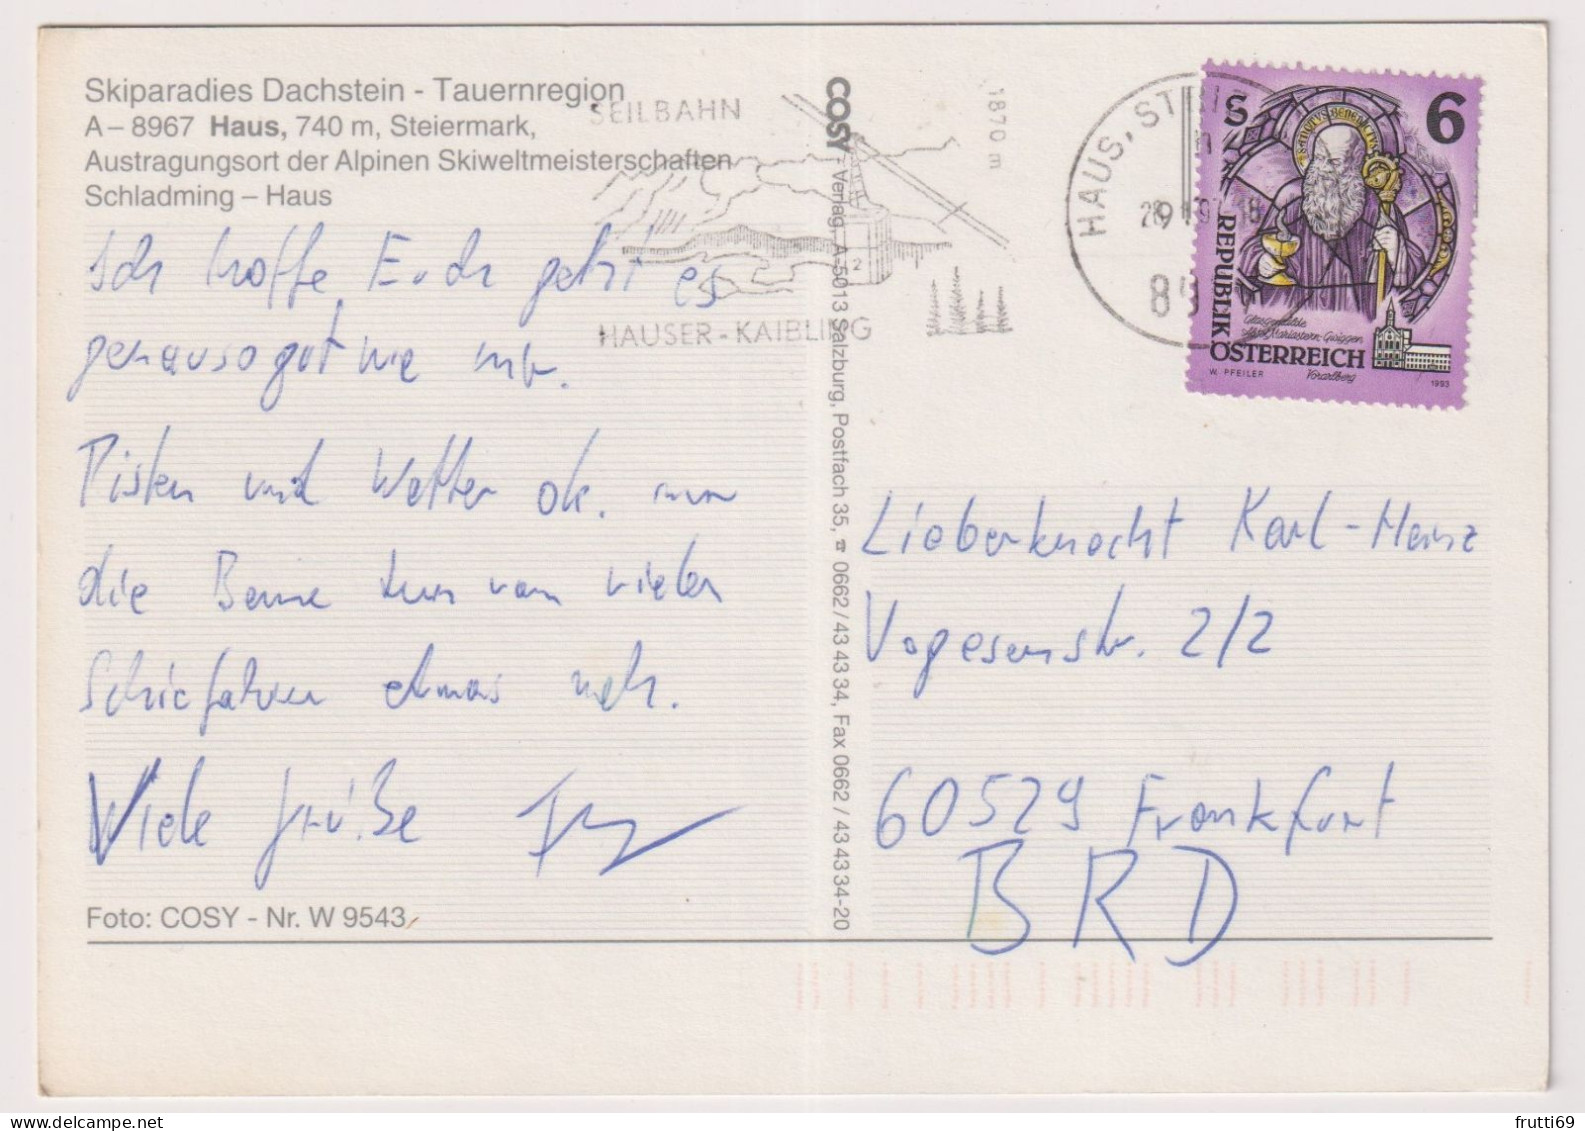 Skiparadies Dachstein - Tauernregion
A – 8967 Haus, 740 m, Steiermark,
Austragungsort der Alpinen Skiweltmeisterschaften
Schladming – Haus
Ich hoffe Euch geht es
genausogut wie mir.
Pisten und Wetter ok. nur
die Beine tun vom vielen
Schiefahren etwas weh.
Viele Grüße
Foto: COSY - Nr. W 9543
COSY - Verlag, A-5013 Salzburg, Postfach 35, ☎ 0662 / 43 43 34, Fax 0662 / 43 43 34-20
SEILBAHN
1870 m
2
HAUSER - KAIBLING
HAUS, STEI
S 6
SANCTUS BENEDICTUS
REPUBLIK
ÖSTERREICH
Glasgemälde
Abtei Mariastern, Gwiggen
Vorarlberg
W. PFEILER
1993
Lieberknecht Karl-Heinz
Vogesenstr. 2/2
60529 Frankfurt
BRD
frutti69